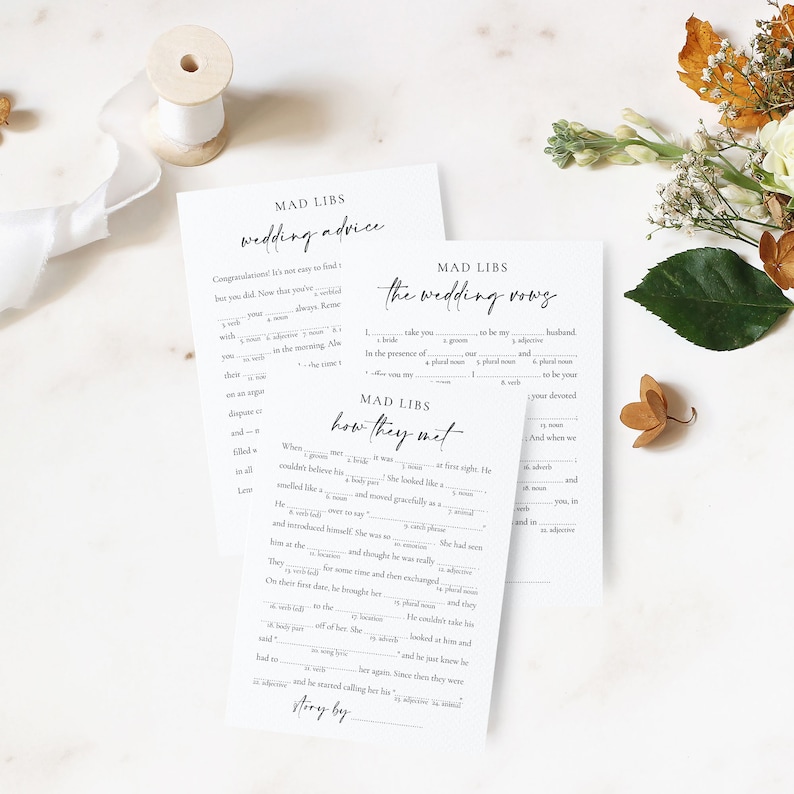 MAD LIBS
wedding advice
Congratulations! It's not easy to find
but you did. Now that you've
2. verb(ed)
your always. Reme
3. verb 4. noun
with
5. noun 6. adjective 7. noun 8.
you in the morning. Alw
10. verb
their the time
11. noun
on an argu
dispute c
and — m
filled w
in all
Lem
MAD LIBS
the wedding vows
I, take you , to be my husband.
1. bride 2. groom 3. adjective
In the presence of , our and ,
4. plural noun 5. plural noun 6. plural noun
I offer you my . I to be your
8. verb
your devoted
;
13. adjective
; And when we
;
16. adverb
and
18. noun
you, in
s and in .
22. adjective
MAD LIBS
how they met
When met it was at first sight. He
1. groom 2. bride 3. noun
couldn't believe his ! She looked like a ,
4. body part 5. noun
smelled like a and moved gracefully as a .
6. noun 7. animal
He over to say " "
8. verb (ed) 9. catch phrase
and introduced himself. She was so . She had seen
10. emotion
him at the and thought he was really .
11. location 12. adjective
They for some time and then exchanged .
13. verb (ed) 14. plural noun
On their first date, he brought her and they
15. plural noun
to the . He couldn't take his
16. verb (ed) 17. location
off of her. She looked at him and
18. body part 19. adverb
said " " and he just knew he
20. song lyric
had to her again. Since then they were
21. verb
and he started calling her his " "
22. adjective 23. adjective 24. animal
story by